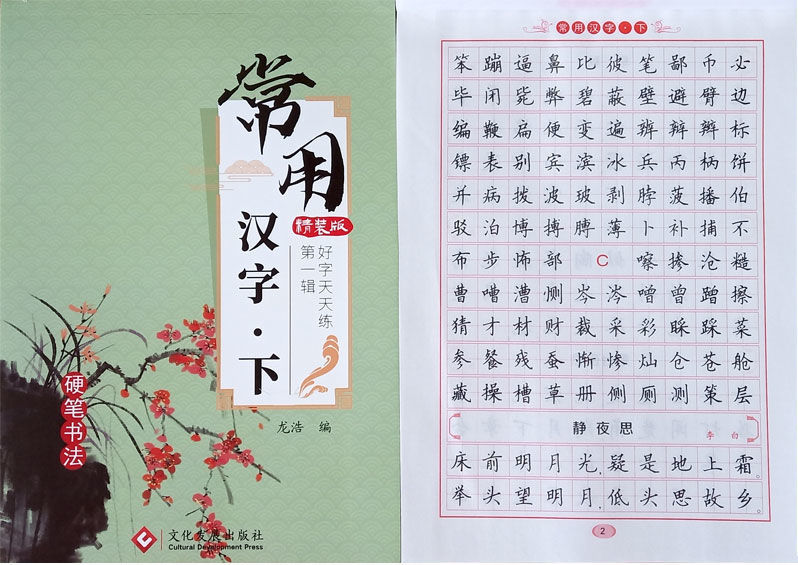 常用
汉字·下
精装版
好字天天练
第一辑
硬笔书法
龙浩 编
文化发展出版社
Cultural Development Press
常用汉字·下
笨蹦逼鼻比彼笔鄙币必
毕闭毙弊碧蔽壁避臂边
编鞭扁便变遍辨辩辫标
镖表别宾滨冰兵丙柄饼
并病拨波玻剥脖菠播伯
驳泊博搏膊薄卜补捕不
布步怖部C嚓掺沧糙
曹嘈漕恻岑涔噌曾蹭擦
猜才材财裁采彩睬踩菜
参餐残蚕惭惨灿仓苍舱
藏操槽草册侧厕测策层
静夜思
李白
床前明月光,疑是地上霜。
举头望明月,低头思故乡。
2